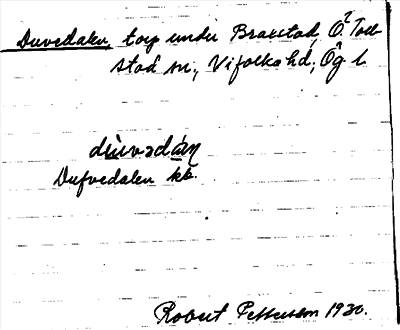 Duvedalen, torp under Braxstad, Ö. Toll-
stad sn., Vifolka hd, Ög. l.
dùvədán
Dufvedalen kk.
Robert Pettersson 1930.